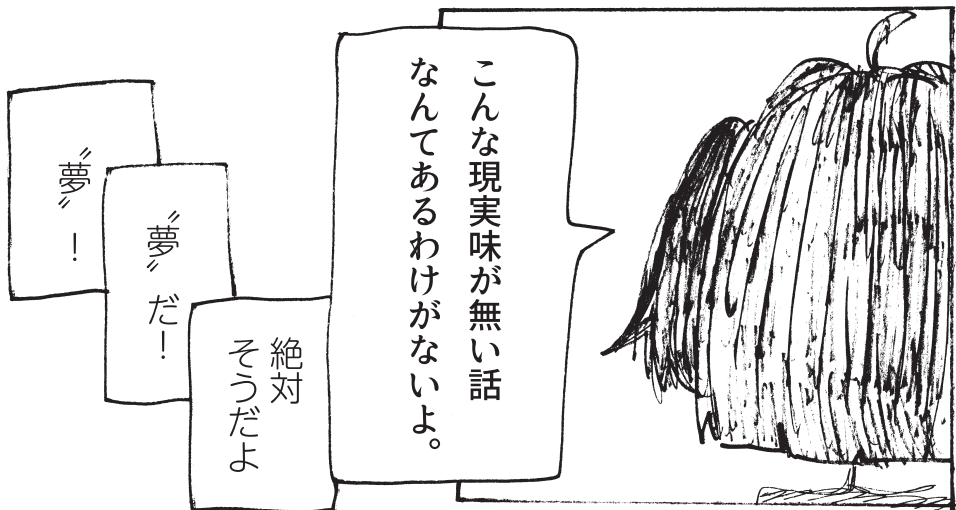 こんな現実味が無い話
なんてあるわけがないよ。
絶対
そうだよ
〝夢〟だ!
〝夢〟!